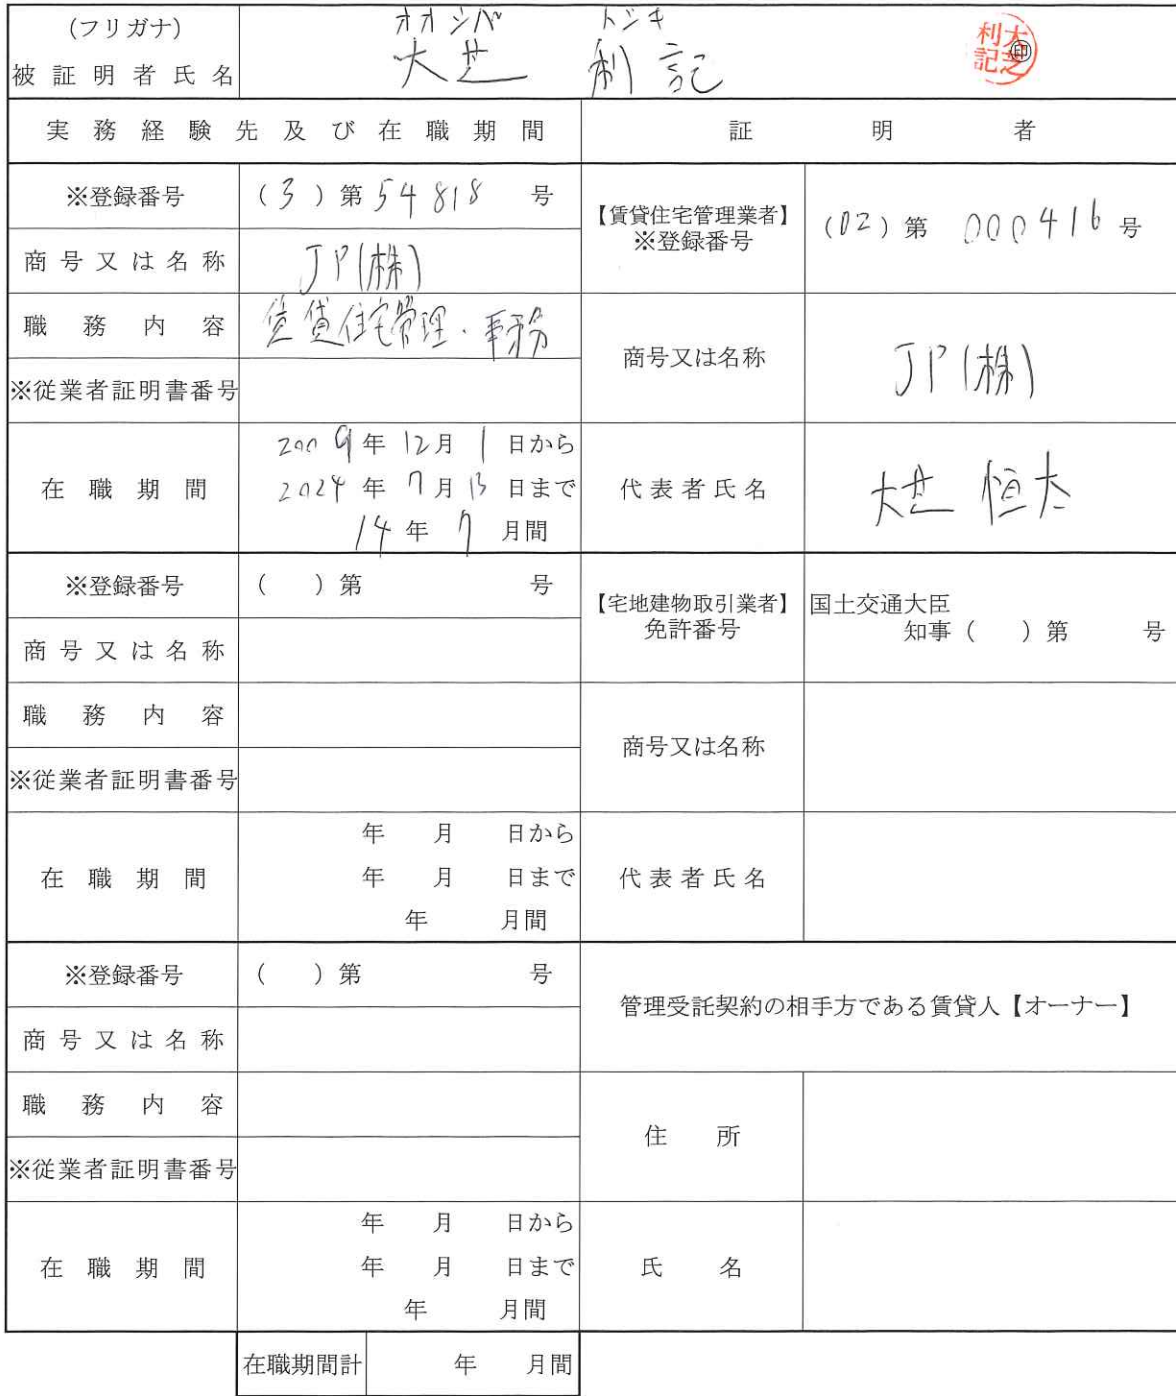 (フリガナ) オオシバ トシキ
被証明者氏名 大芝 利記 ㊞
大芝利記
実務経験先及び在職期間 証明者
※登録番号 (3)第54818号
【賃貸住宅管理業者】
※登録番号 (02)第000416号
商号又は名称 JP(株)
職務内容 賃貸住宅管理・事務
商号又は名称 JP(株)
※従業者証明書番号
在職期間 2009年12月1日から
2024年7月13日まで
14年7月間
代表者氏名 大芝 恒太
※登録番号 ( )第 号
【宅地建物取引業者】
免許番号
国土交通大臣
知事( )第 号
商号又は名称
職務内容
商号又は名称
※従業者証明書番号
在職期間 年 月 日から
年 月 日まで
年 月間
代表者氏名
※登録番号 ( )第 号
管理受託契約の相手方である賃貸人【オーナー】
商号又は名称
職務内容
住所
※従業者証明書番号
在職期間 年 月 日から
年 月 日まで
年 月間
氏名
在職期間計 年 月間